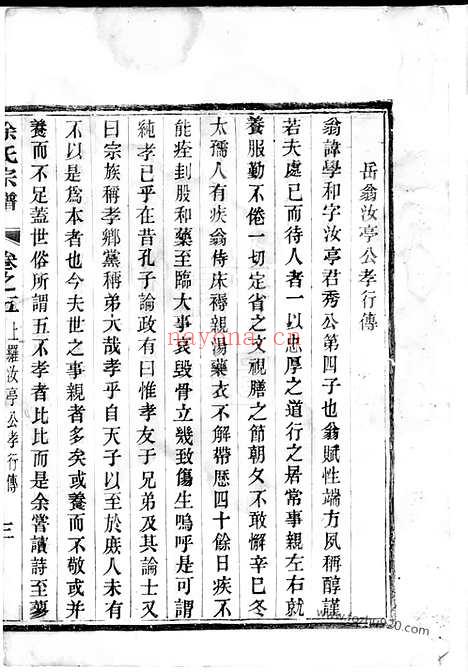 岳翁汝亭公孝行傳
翁諱學和字汝亭君秀公第四子也翁賦性端方夙稱醇謹
若夫處己而待人者一以忠厚之道行之居常事親左右就
養服勤不倦一切定省之文視膳之節朝夕不敢懈辛巳冬
太孺人有疾翁侍床褥親湯藥衣不解帶歷四十餘日疾不
能痊刲股和藥至臨大事哀毀骨立幾致傷生嗚呼是可謂
純孝已乎在昔孔子論政有曰惟孝友于兄弟及其論士又
曰宗族稱孝鄉黨稱弟大哉孝乎自天子以至於庶人未有
不以是為本者也今夫世之事親者多矣或養而不敬或并
養而不足蓋世俗所謂五不孝者比比而是余嘗讀詩至蓼
余氏宗譜 卷之五 上羅汝亭公孝行傳 三
nayuna.cn
www.fozhu920.com